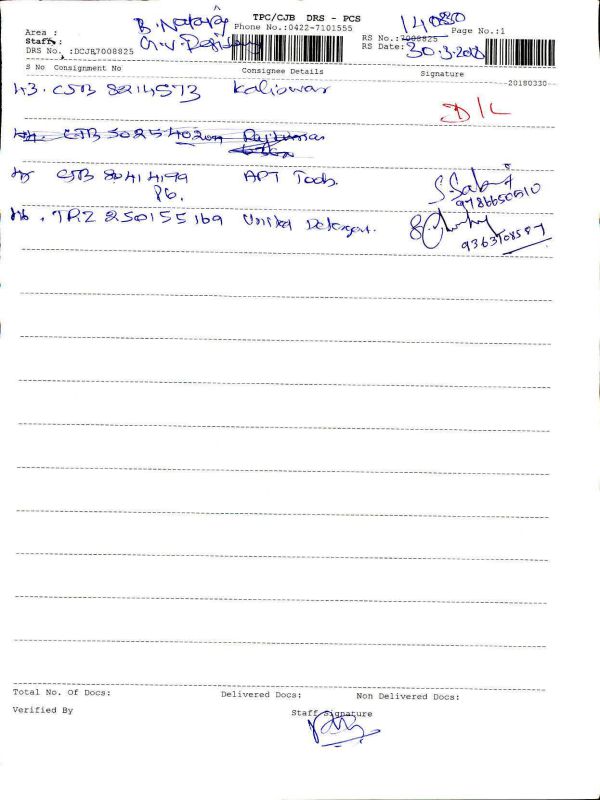 TPC/CJB DRS - PCS
B. Nataraj
14080
Area :
Phone No.:0422-7101555
Page No.:1
Staff :
G.V.
RS No.:7008825
DRS No. :DCJB7008825
RS Date: 30-3-2018
S No Consignment No
Consignee Details
Signature
20180330
43. CJB 8214573 Kaliswar
D/L
44. CJB
45 CJB 80414179 APT Tools.
86.
9786650510
46. TRZ 250155169 United Detergent.
9363108587
Total No. Of Docs:
Delivered Docs:
Non Delivered Docs:
Verified By
Staff Signature